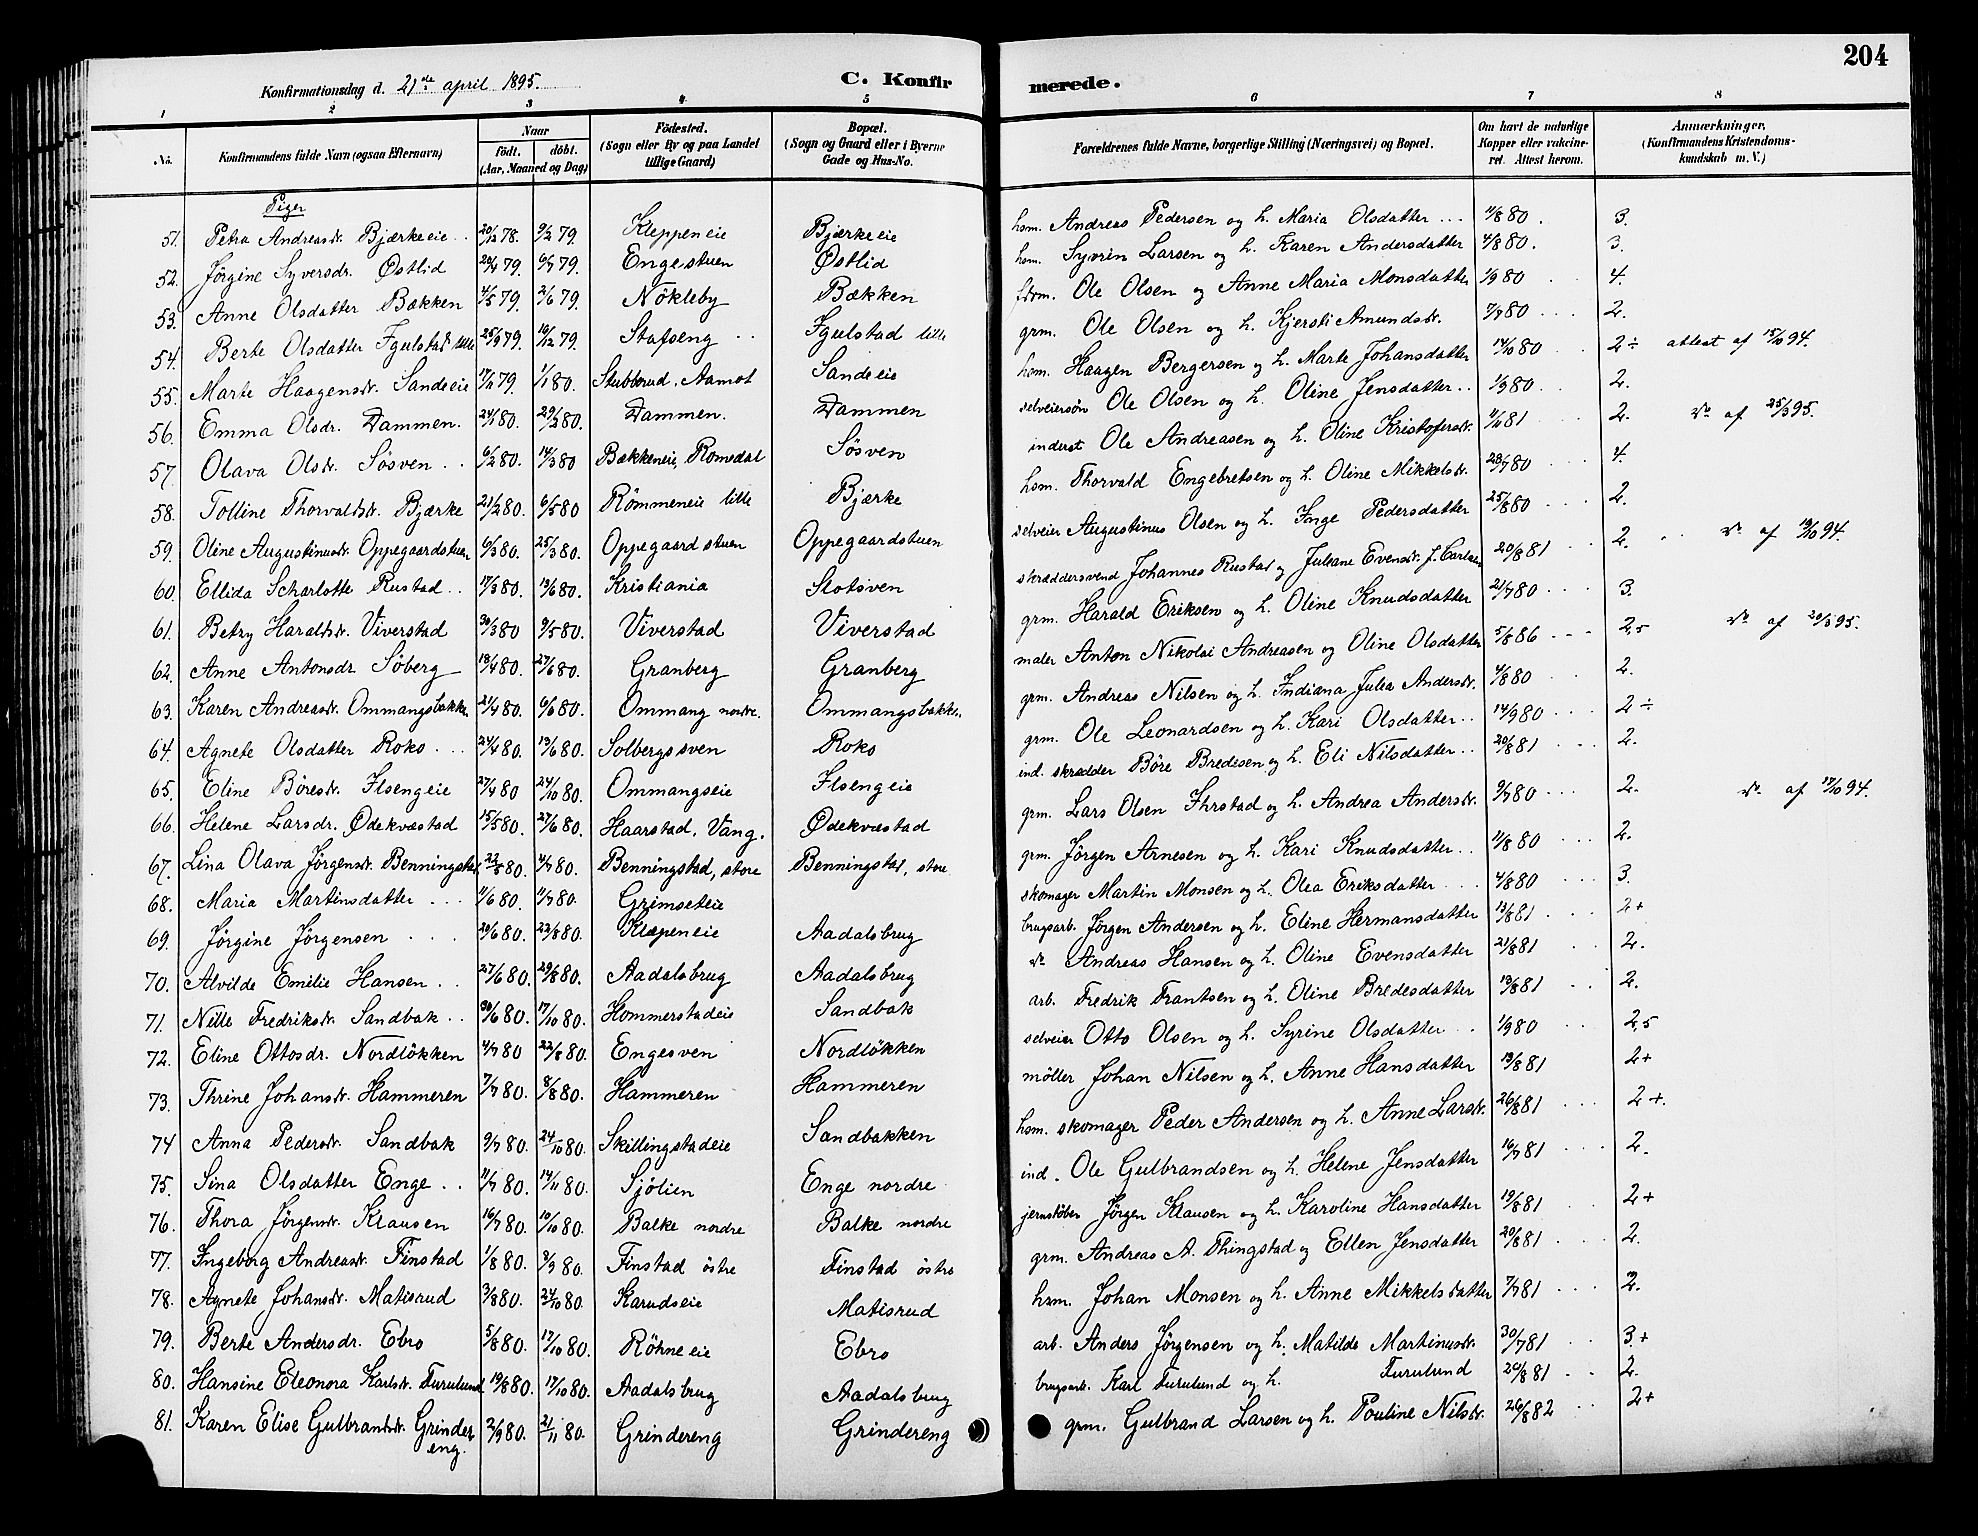 204
Konfirmationsdag d. 21de april 1895.
C. Konfirmerede.
1 2 3 4 5 6 7 8
No. Konfirmandens fulde Navn (ogsaa Efternavn) Naar født. døbt. (Aar, Maaned og Dag) Fødested. (Sogn eller By og paa Landet tillige Gaard) Bopæl. (Sogn og Gaard eller i Byerne Gade og Hus-No. Forældrenes fulde Navne, borgerlige Stilling (Næringsvei) og Bopæl. Om havt de naturlige Kopper eller vaccineret. Attest herom. Anmærkninger. (Konfirmandens Kristendomskundskab m. V.)
Piger
51. Petra Andreasdr. Bjærkeeie 20/12 78. 9/2 79. Kleppeneie Bjærkeeie hsm. Andreas Pedersen og h. Maria Olsdatter 11/8 80. 3.
52. Jørgine Syversdr. Østlid 79. 79. Engestuen Østlid hsm. Syvrin Larsen og h. Karen Andersdatter 4/8 80. 3.
53. Anne Olsdatter Bækken 4/5 79. 2/6 79. Nökleby Bækken fdrm. Ole Olsen og Anne Maria Monsdatter 1/9 80 4.
54. Berte Olsdatter Igulstad lille 25/9 79. 19/12 79. Stafseng Igulstad lille grm. Ole Olsen og h. Kjersti Amundsdr. 7/9 80 2.
55. Marte Haagensdr. Sandeeie 79. 1/1 80. Stubberud, Aamot Sandeeie hsm. Haagen Bergersen og h. Marte Johansdatter 14/10 80 2÷ attest af 15/10 94.
56. Emma Olsdr. Dammen. 24/1 80. 29/2 80. Dammen. Dammen selveiersøn Ole Olsen og h. Oline Jensdatter 1/9 80 2.
57. Olava Olsdr. Sösven 6/2 80. 14/3 80 Bækkeneie, Romedal Sösven inderst Ole Andreasen og h. Oline Kristofersdr. 81 2. do af 25/3 95.
58. Tolline Thorvaldsdr. Bjærke 21/2 80. 6/5 80 Römmeneie lille Bjærke hsm. Thorvald Engebretsen og h. Oline Mikkelsdr. 28/7 80 4.
59. Oline Augustinusdr. Oppegaardstuen 6/3 80. 25/3 80. Oppegaard stuen Oppegaardstuen selveier Augustinus Olsen og h. Inge Pedersdatter 25/8 80 2.
60. Ellida Scharlotte Rustad 17/3 80. 13/6 80. Kristiania Slotsven skræddersvend Johannes Rustad og Juliane Evensdr. f. Carlsen 20/8 81 2. do af 19/10 94.
61. Betzy Haraldsdr. Viverstad 30/3 80 9/5 80. Viverstad Viverstad grm. Harald Eriksen og h. Oline Knudsdatter 21/7 80 3.
62. Anne Antonsdr. Söberg 18/4 80. 27/6 80. Granberg Granberg maler Anton Nikolai Andreasen og Oline Olsdatter 5/8 86 2,5 do af 20/3 95.
63. Karen Andreasdr. Ommangsbakke 21/4 80. 6/6 80. Ommang nordre. Ommangsbakke. grm. Andreas Nilsen og h. Indiana Julia Andersdr. 4/8 80 2.
64. Agnete Olsdatter Roko 24/4 80. 13/6 80. Solbergsven Roko grm. Ole Leonardsen og h. Kari Olsdatter 14/9 80 2÷
65. Eline Böresdr. Ilsengeie 27/4 80 24/10 80. Ommangseie Ilsengeie ind. skrædder Böre Bredesen og h. Eli Nilsdatter 20/8 81 2.
66. Helene Larsdr. Ødekvæstad 15/5 80. 27/6 80. Haarstad, Vang. Ødekvæstad grm. Lars Olsen Ihrstad og h. Andrea Andersdr. 9/7 80 2. do af 17/10 94.
67. Lina Olava Jørgensdr. Benningstad 22/5 80. 4/7 80. Benningstad, store Benningstad, store grm. Jörgen Arnesen og h. Kari Knudsdatter 11/8 80 2.
68. Maria Martinsdatter 11/6 80. 11/7 80. Grimseteie skomager Martin Monsen og h. Olea Eriksdatter 4/8 80 3.
69. Jörgine Jörgensen 20/6 80. 22/8 80. Klæpeneie Aadalsbrug brugsarb. Jörgen Andersen og h. Eline Hermansdatter 13/8 81 2+
70. Alvilde Emilie Hansen 27/6 80. 29/8 80. Aadalsbrug Aadalsbrug do Andreas Hansen og h. Oline Evensdatter 21/8 81 2.
71. Nille Fredriksdr. Sandbak 30/6 80. 17/10 80. Hommerstadeie Sandbak arb. Fredrik Frantsen og h. Oline Bredesdatter 13/8 81 2.
72. Eline Ottosdr. Nordlökken 4/7 80 22/8 80. Engesven Nordlökken selveier Otto Olsen og h. Syrine Olsdatter 1/9 80 2,5
73. Thrine Johansdr. Hammeren 7/7 80. 8/8 80. Hammeren Hammeren möller Johan Nilsen og h. Anne Hansdatter 13/8 81 2+
74 Anna Pedersdr. Sandbak 9/7 80. 24/10 80. Skillingstadeie Sandbakken hsm. skomager Peder Andersen og h. Anne Larsdr. 26/8 81 2+.
75. Sina Olsdatter Enge 11/7 80. 14/11 80. Sjölien Enge nordre ind. Ole Gulbrandsen og h. Helene Jensdatter 16/7 81 2.
76. Thora Jörgensdr. Klausen 16/7 80. 10/10 80. Balke nordre Balke nordre jernstöber Jörgen Klausen og h. Karoline Hansdatter 19/8 81 2+
77. Ingeborg Andreasdr. Finstad 1/8 80. 80. Finstad östre Finstad östre grm. Andreas A. Thingstad og Ellen Jensdatter 20/8 81 2.
78. Agnete Johansdr. Matisrud 3/8 80. 24/10 80. Karudseie Matisrud hsm. Johan Monsen og h. Anne Mikkelsdatter 7/7 81 2.
79. Berte Andersdr. Ebro 5/8 80. 17/10 80. Röhneeie Ebro arb. Anders Jörgensen og h. Matilde Martinusdr. 30/7 81 3+
80. Hansine Eleonora Karlsdr. Furulund 19/8 80. 17/10 80. Aadalsbrug Aadalsbrug brugsarb. Karl Furulund og h. Furulund 20/8 81 2.
81. Karen Elise Gulbrandsdr. Grindereng. 2/9 80. 21/11 80. Grindereng Grindereng grm. Gulbrand Larsen og h. Pouline Nilsdr. 26/8 82 2+